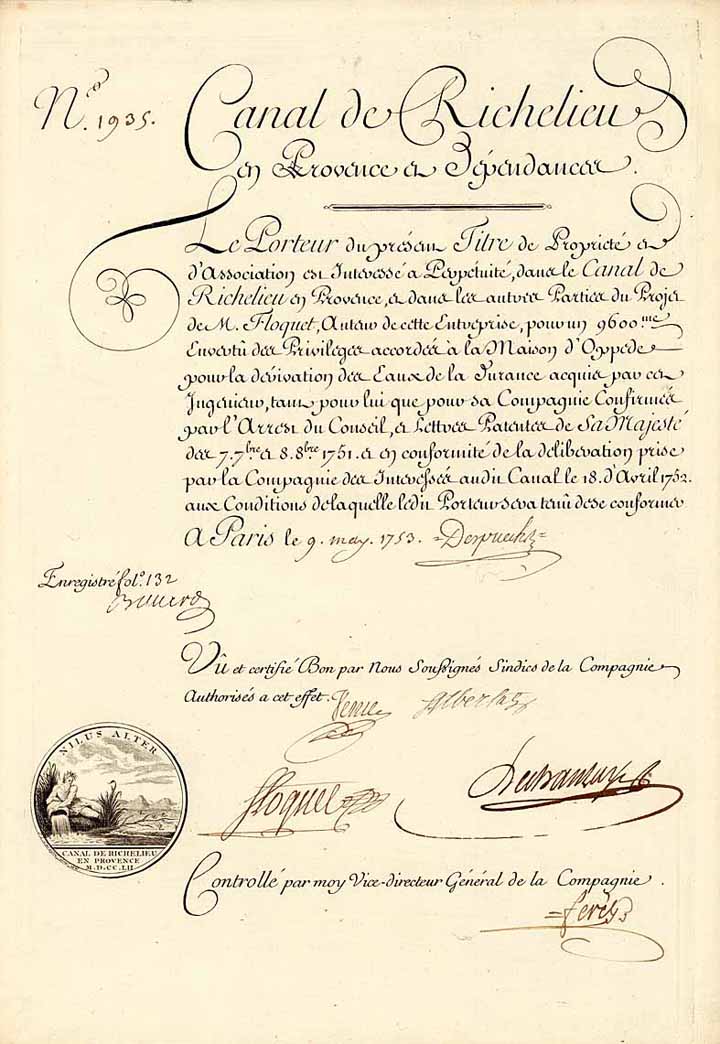 N.º 1935.
Canal de Richelieu
en Provence et Dépendances.
Le Porteur du présent Titre de Proprieté et
d'Association est Interessé a Perpétuité, dans le Canal de
Richelieu en Provence, et dans les autres Parties du Projet
de M. Floquet, Auteur de cette Entreprise, pour un 9600.me
Envertû des Privileges accordés à la Maison d'Oppede
pour la dérivation des Eaux de la Durance acquis par cet
Ingénieur, tant pour lui que pour sa Compagnie Confirmés
par l'Arrest du Conseil, et Lettres Patentes de Sa Majesté
des 7. 7.bre et 8. 8.bre 1751. et en conformité de la déliberation prise
par la Compagnie des Interessés audit Canal le 18. d'Avril 1752.
aux Conditions de laquelle ledit Porteur sera tenû de se conformer
A Paris le 9. may. 1753.
Enregistré fol.º 132
Vû et certifié Bon par Nous Soussignés Sindics de la Compagnie
Authorisés a cet effet.
Floquet
NILUS ALTER
CANAL DE RICHELIEU
EN PROVENCE
M.D.CC.LII
Controllé par moy Vice-directeur Général de la Compagnie.